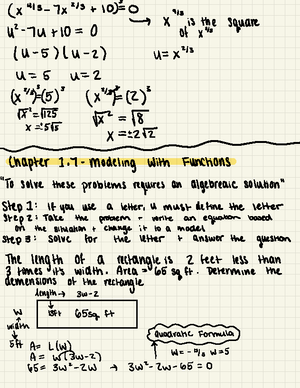 (x^4/3 - 7x^2/3 + 10)=0
x^4/3 is the square
of x^2/3
u²-7u+10=0
(u-5)(u-2)
u=x^2/3
u=5 u=2
(x^2/3)³=(5)³ (x^2/3)³=(2)³
√x²=√125 √x²=√8
x=±5√5 x=±2√2
Chapter 1.7- Modeling with Functions
"To solve these problems requires an algebreaic solution"
Step 1: if you use a letter, u must define the letter
Step 2: Take the problem + write an equation based
on the situation + change it to a model
Step 3: Solve for the letter + answer the question
The length of a rectangle is 2 feet less than
3 times it's width. Area = 65 sq ft. Determine the
demensions of the rectangle
length → 3w-2
w
width
5ft
13ft 65sq ft
Quadratic Formula
A= L(W)
w= -13/3 w=5
A= W(3w-2)
65= 3w²-2w → 3w²-2w-65=0